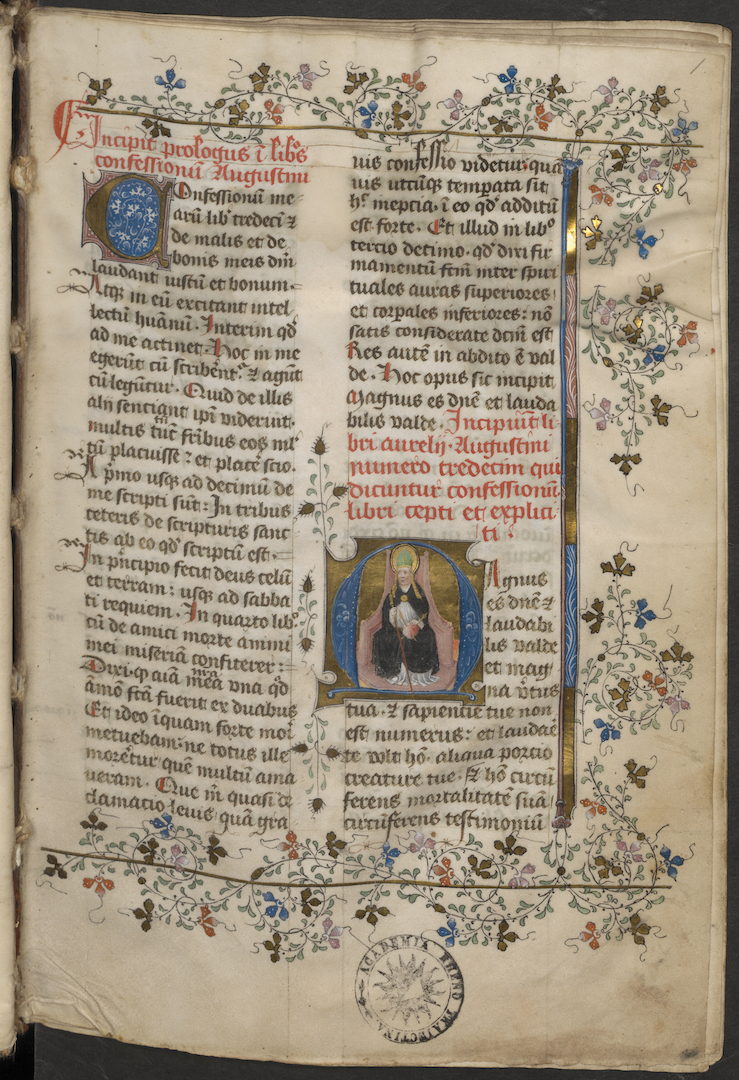 Incipit prologus ī lib̄os
confessionū Augustini
Confessionū me-
arū lib' tredeci ⁊
de malis et de
bonis meis dm̄
laudant iustū et bonum.
Atq̨ in eū excitant intel-
lectū huānū. Interim qd̄
ad me attinet. Hoc in me
egerūt cū scribēnt᷑. ⁊ agūt
cū legūtur. Quid de illis
alij sentiant ip̄i viderint.
multis tn̄ fr̄ibus eos ml᷑
tū placuisse ⁊ et placē scio.
A p̄mo usq̨ ad decimū de
me scripti sūt: In tribus
ceteris de scripturis sanc
tis ab eo qd̄ scriptū est.
In p̄ncipio fecit deus celū
et terram: usq̨ ad sabba
ti requiem. In quarto lib°
cū de amici morte animi
mei miseriā confiterer:
Dixi q̄ aīa mēa vna qd̄
āmō fc̄ā fuerit ex duabus
Et ideo īquam forte mori
metuebam: ne totus ille
morēt᷑ur quē multū ama
ueram. Que m̄ quasi de
clamatio leuis quā gra
uis confessio videtur quā
uis utcūq̨ temp̄ata sit
h̄ ineptia. ī eo qd̄ additū
est forte. Et illud in lib°
tercio decimo. qd̄ dixi fir
mamentū fc̄m inter spiri
tuales auras superiores
et corp̄ales inferiores: nō
satis considerate dc̄m est
Res autē in abdito ē val
de. Hoc opus sic incipit
Magnus es dn̄e et lauda
bilis valde. Incipiūt li
bri aurelij. Augustini
numero tredecim qui
dicuntur confessionū
libri cepti et explici
ti.
Magnus
es dn̄e ⁊
laudabi
lis valde
et mag
na v̄tus
tua. ⁊ sapientie tue non
est numerus: et laudaē
te volt hō. aliqua portio
creature tue. Et hō circū
ferens mortalitatē suā
circūferens testimoniū
1
ACADEMIA RHENO TRAIECTINA